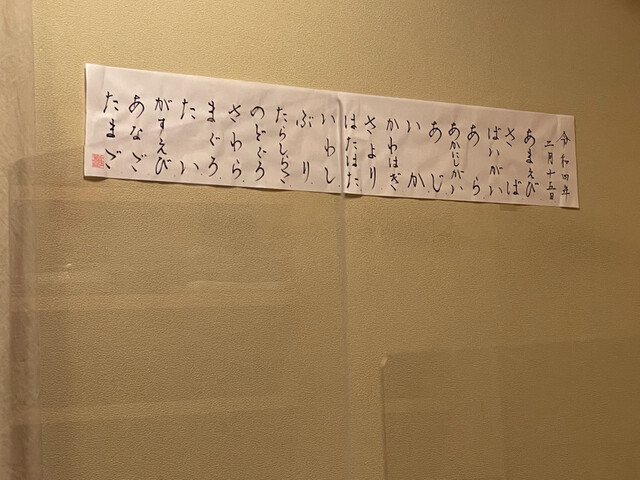 令和四年
二月十五日
あまえび
さば
ばいがい
あら
あかにしがい
あじ
いか
かわはぎ
さより
はたはた
いわし
ぶり
たらしらこ
のどぐろ
さわら
まぐろ
たい
がすえび
あなご
たまご